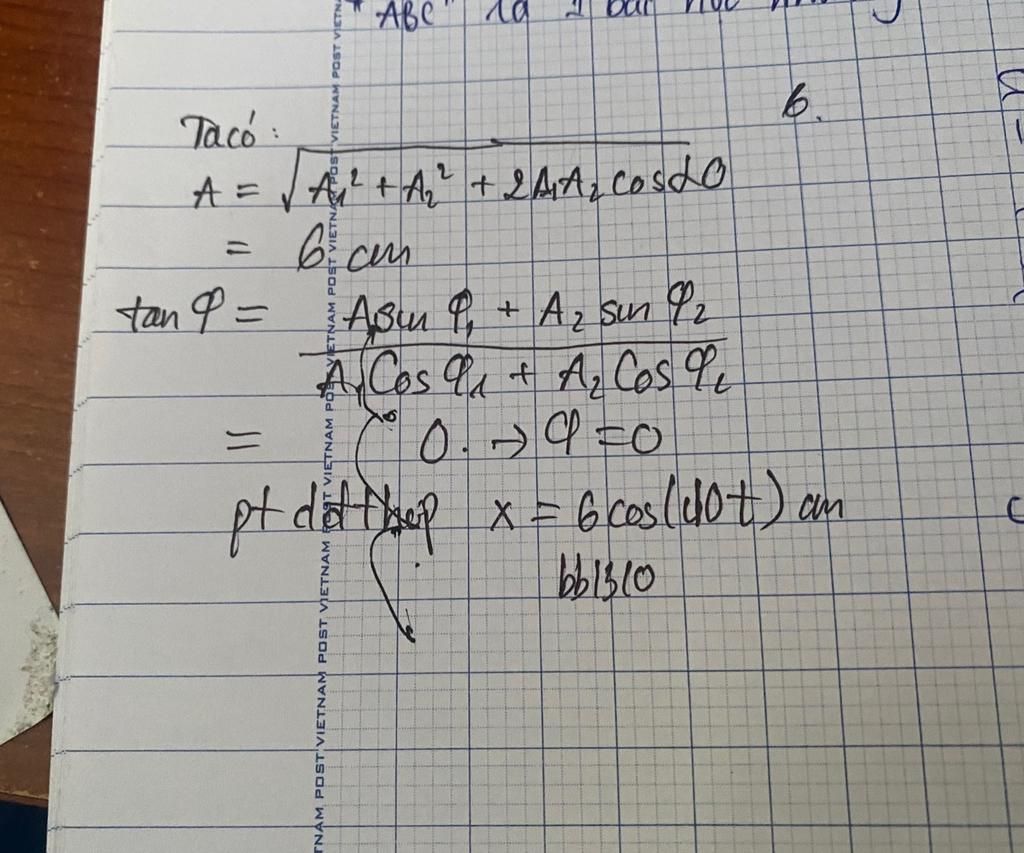 "ABC" là 1
6.
Ta có:
A = √(A₁² + A₂² + 2A₁A₂ cos α0
= 6 cm
tan φ = A₁sin φ₁ + A₂ sin φ₂
A₁ Cos φ₁ + A₂ Cos φ₂
= 0. → φ = 0
pt dđ thợp x = 6 cos(40t) cm
POST VIETNAM POST VIETNAM POST VIETNAM POST VIETNAM POST VIETNAM POST VIETNAM